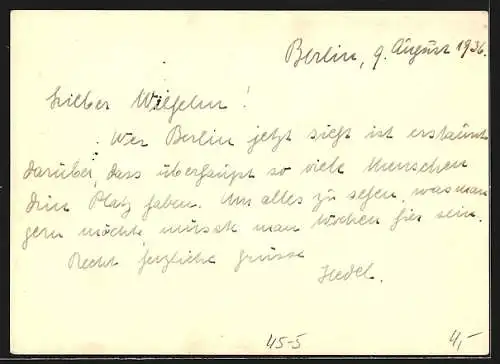 Berlin, 9. August 1936.
Lieber Wilhelm!
Wer Berlin jetzt sieht ist erstaunt
darüber, dass überhaupt so viele Menschen
drin Platz haben. Um alles zu sehen, was man
gern möchte müsste man Wochen hier sein.
Recht herzliche Grüsse
Hedel.
45-5
4,-